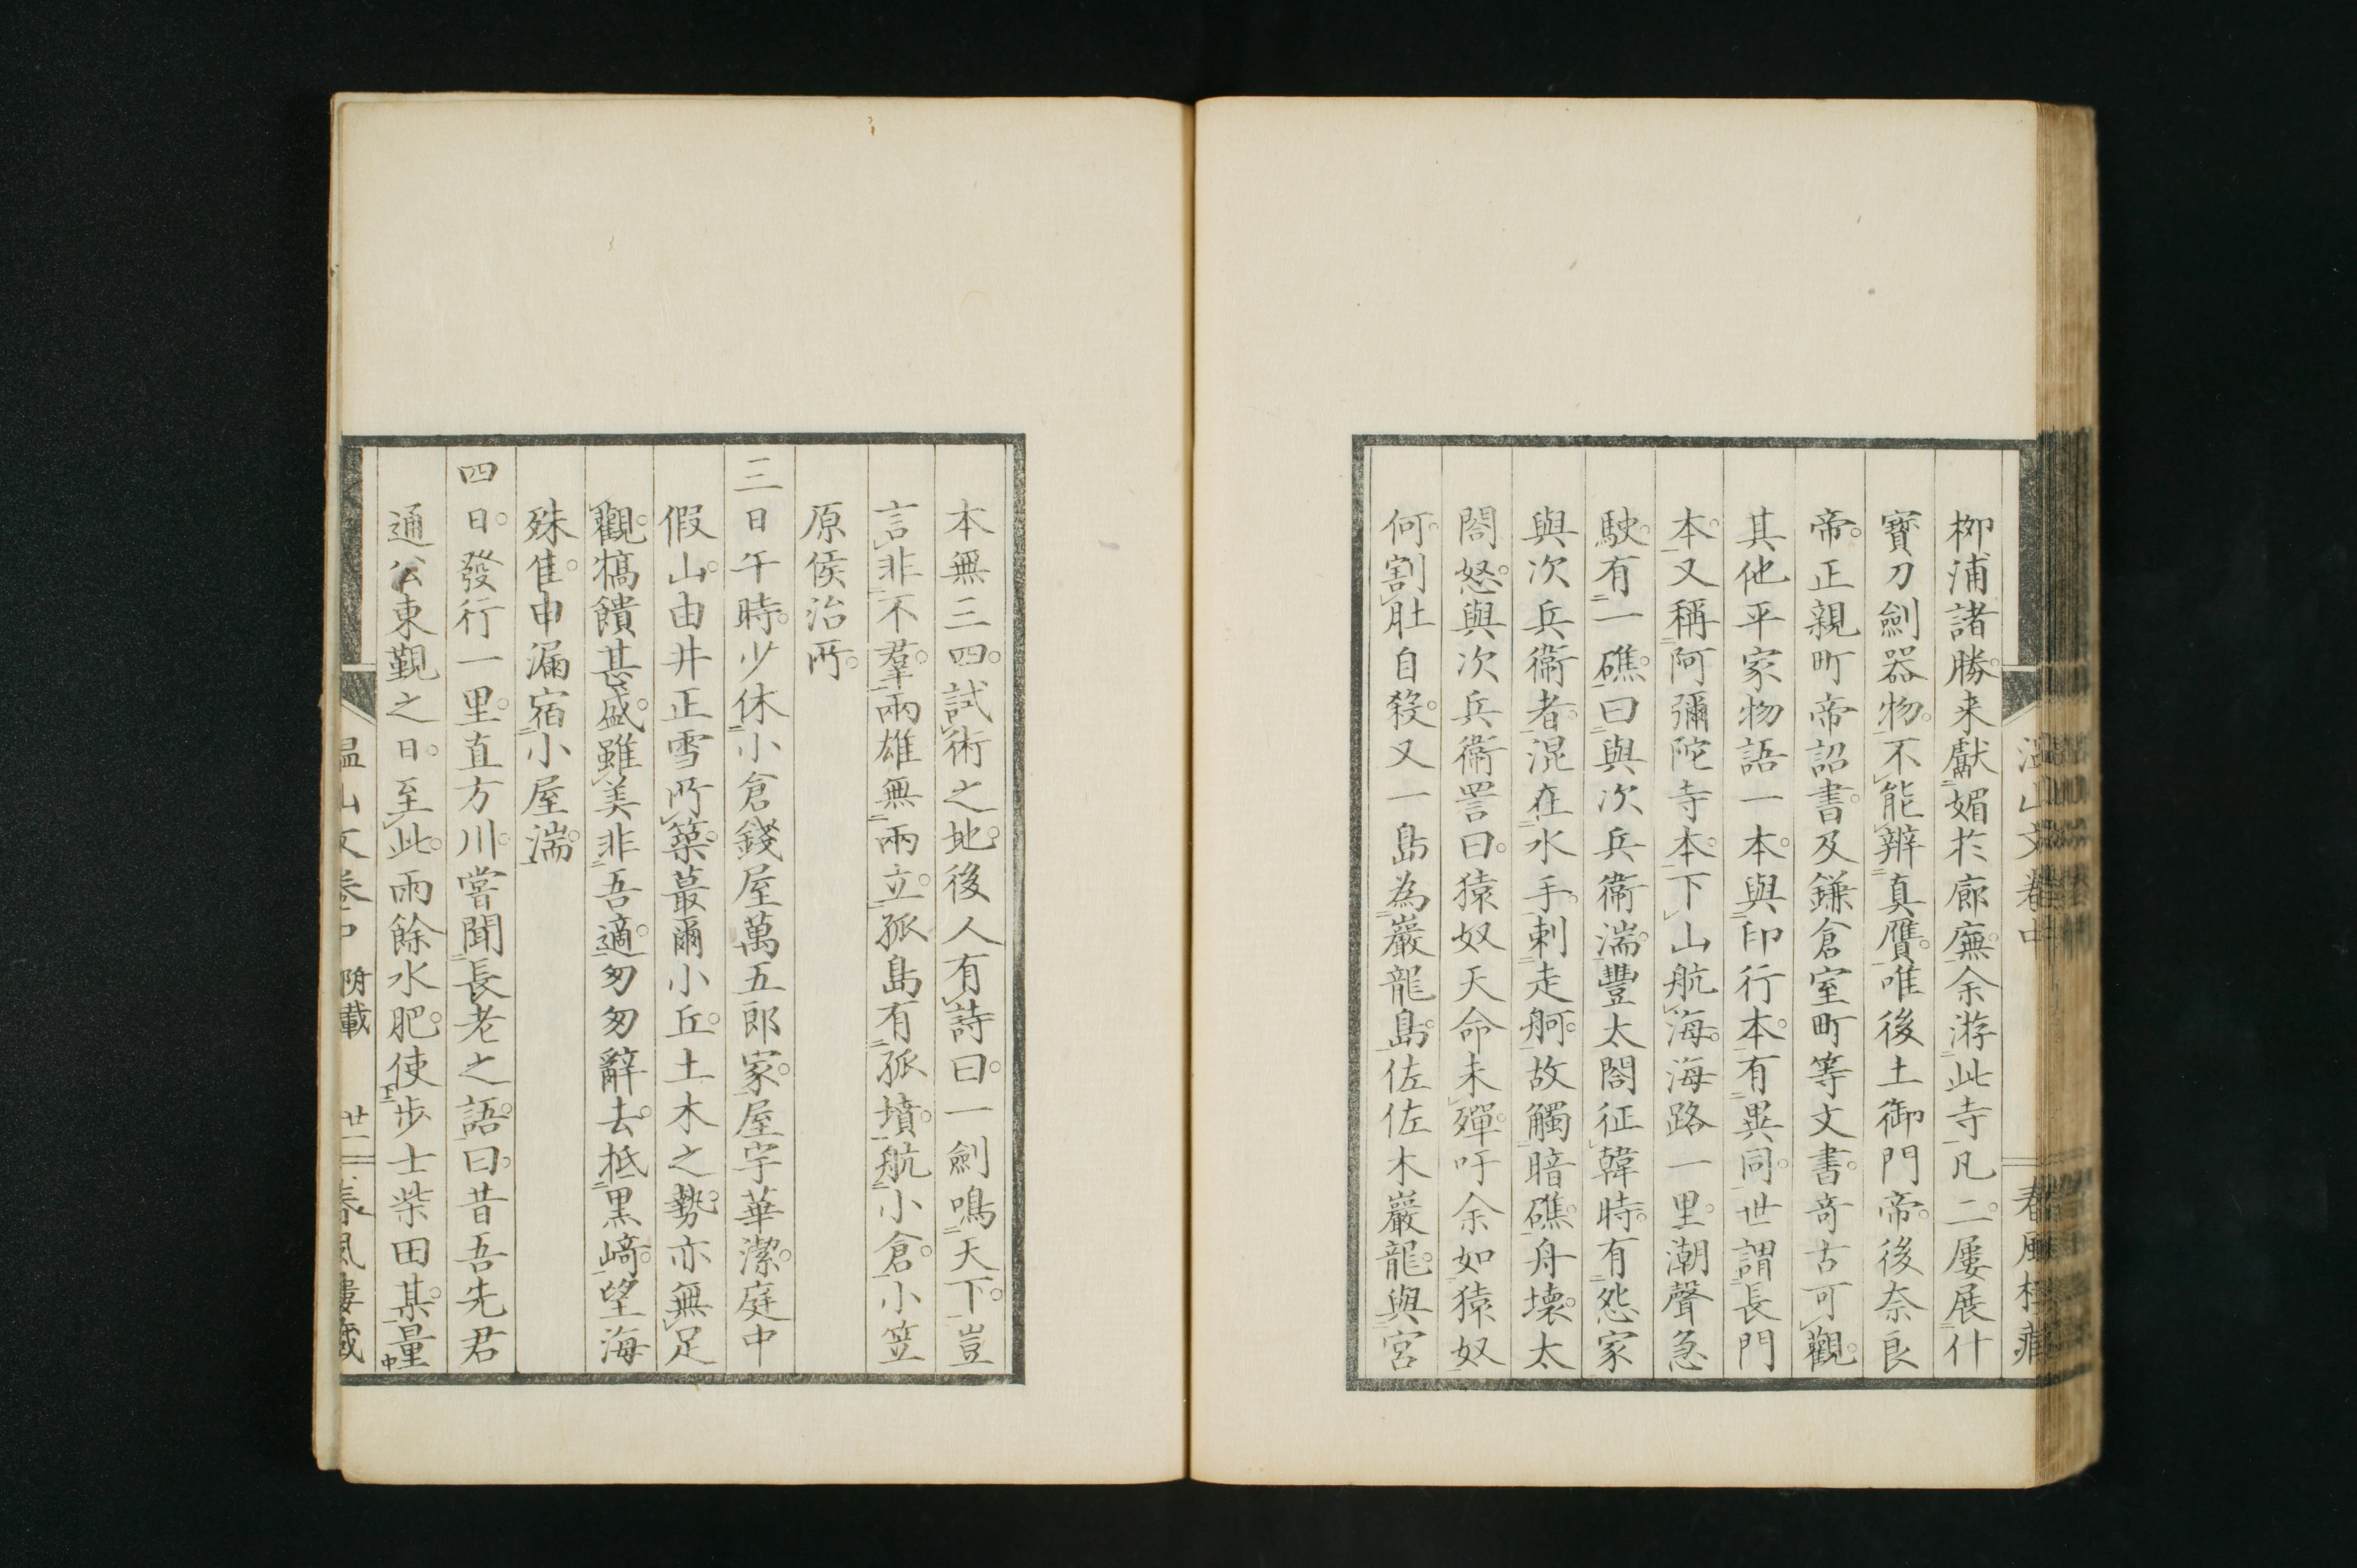 柳浦諸勝来獻媚於廊廡余游此寺凡二屢展什
寳刀劍器物不能辨真贋唯後土御門帝後奈良
帝正親町帝詔書及鎌倉室町等文書竒古可觀
其他平家物語一本與印行本有異同世謂長門
本又稱阿彌陀寺本下山航海海路一里潮聲急
駛有一礁曰與次兵衞湍豐太閤征韓時有怨家
與次兵衞者混在水手刺走舸故觸暗礁舟壊太
閤怒與次兵衞詈曰猿奴天命未殫吁余如猿奴
何割肚自殺又一島為巖龍島佐佐木巖龍與宮
本無三四試術之地後人有詩曰一劍鳴天下豈
言非不羣兩雄無兩立孤島有孤墳航小倉小笠
原侯治所
三日午時少休小倉錢屋萬五郎家屋宇華潔庭中
假山由井正雪所築蕞爾小丘土木之勢亦無足
觀犒饋甚盛雖美非吾適匆匆辭去抵黒﨑望海
殊隹申漏宿小屋湍
四日發行一里直方川嘗聞長老之語曰昔吾先君
通公東覲之日至此雨餘水肥使歩士柴田某量
温山文卷中 附載 廿一 春風樓藏